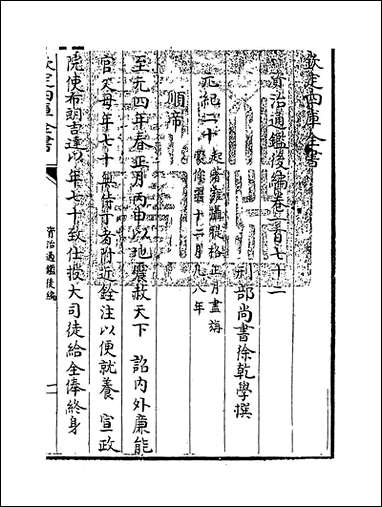 欽定四庫全書
資治通鑑後編卷一百七十二
刑部尚書徐乾學撰
元紀二十
起著雍攝提格正月盡旃
蒙作噩十二月凡八年
順帝
至元四年春正月丙申以地震赦天下 詔內外廉能
官父母年七十無侍子者附近銓注以便就養 宣政
院使布明吉達以年七十致仕授大司徒給全俸終身
欽定四庫全書
資治通鑑後編
一